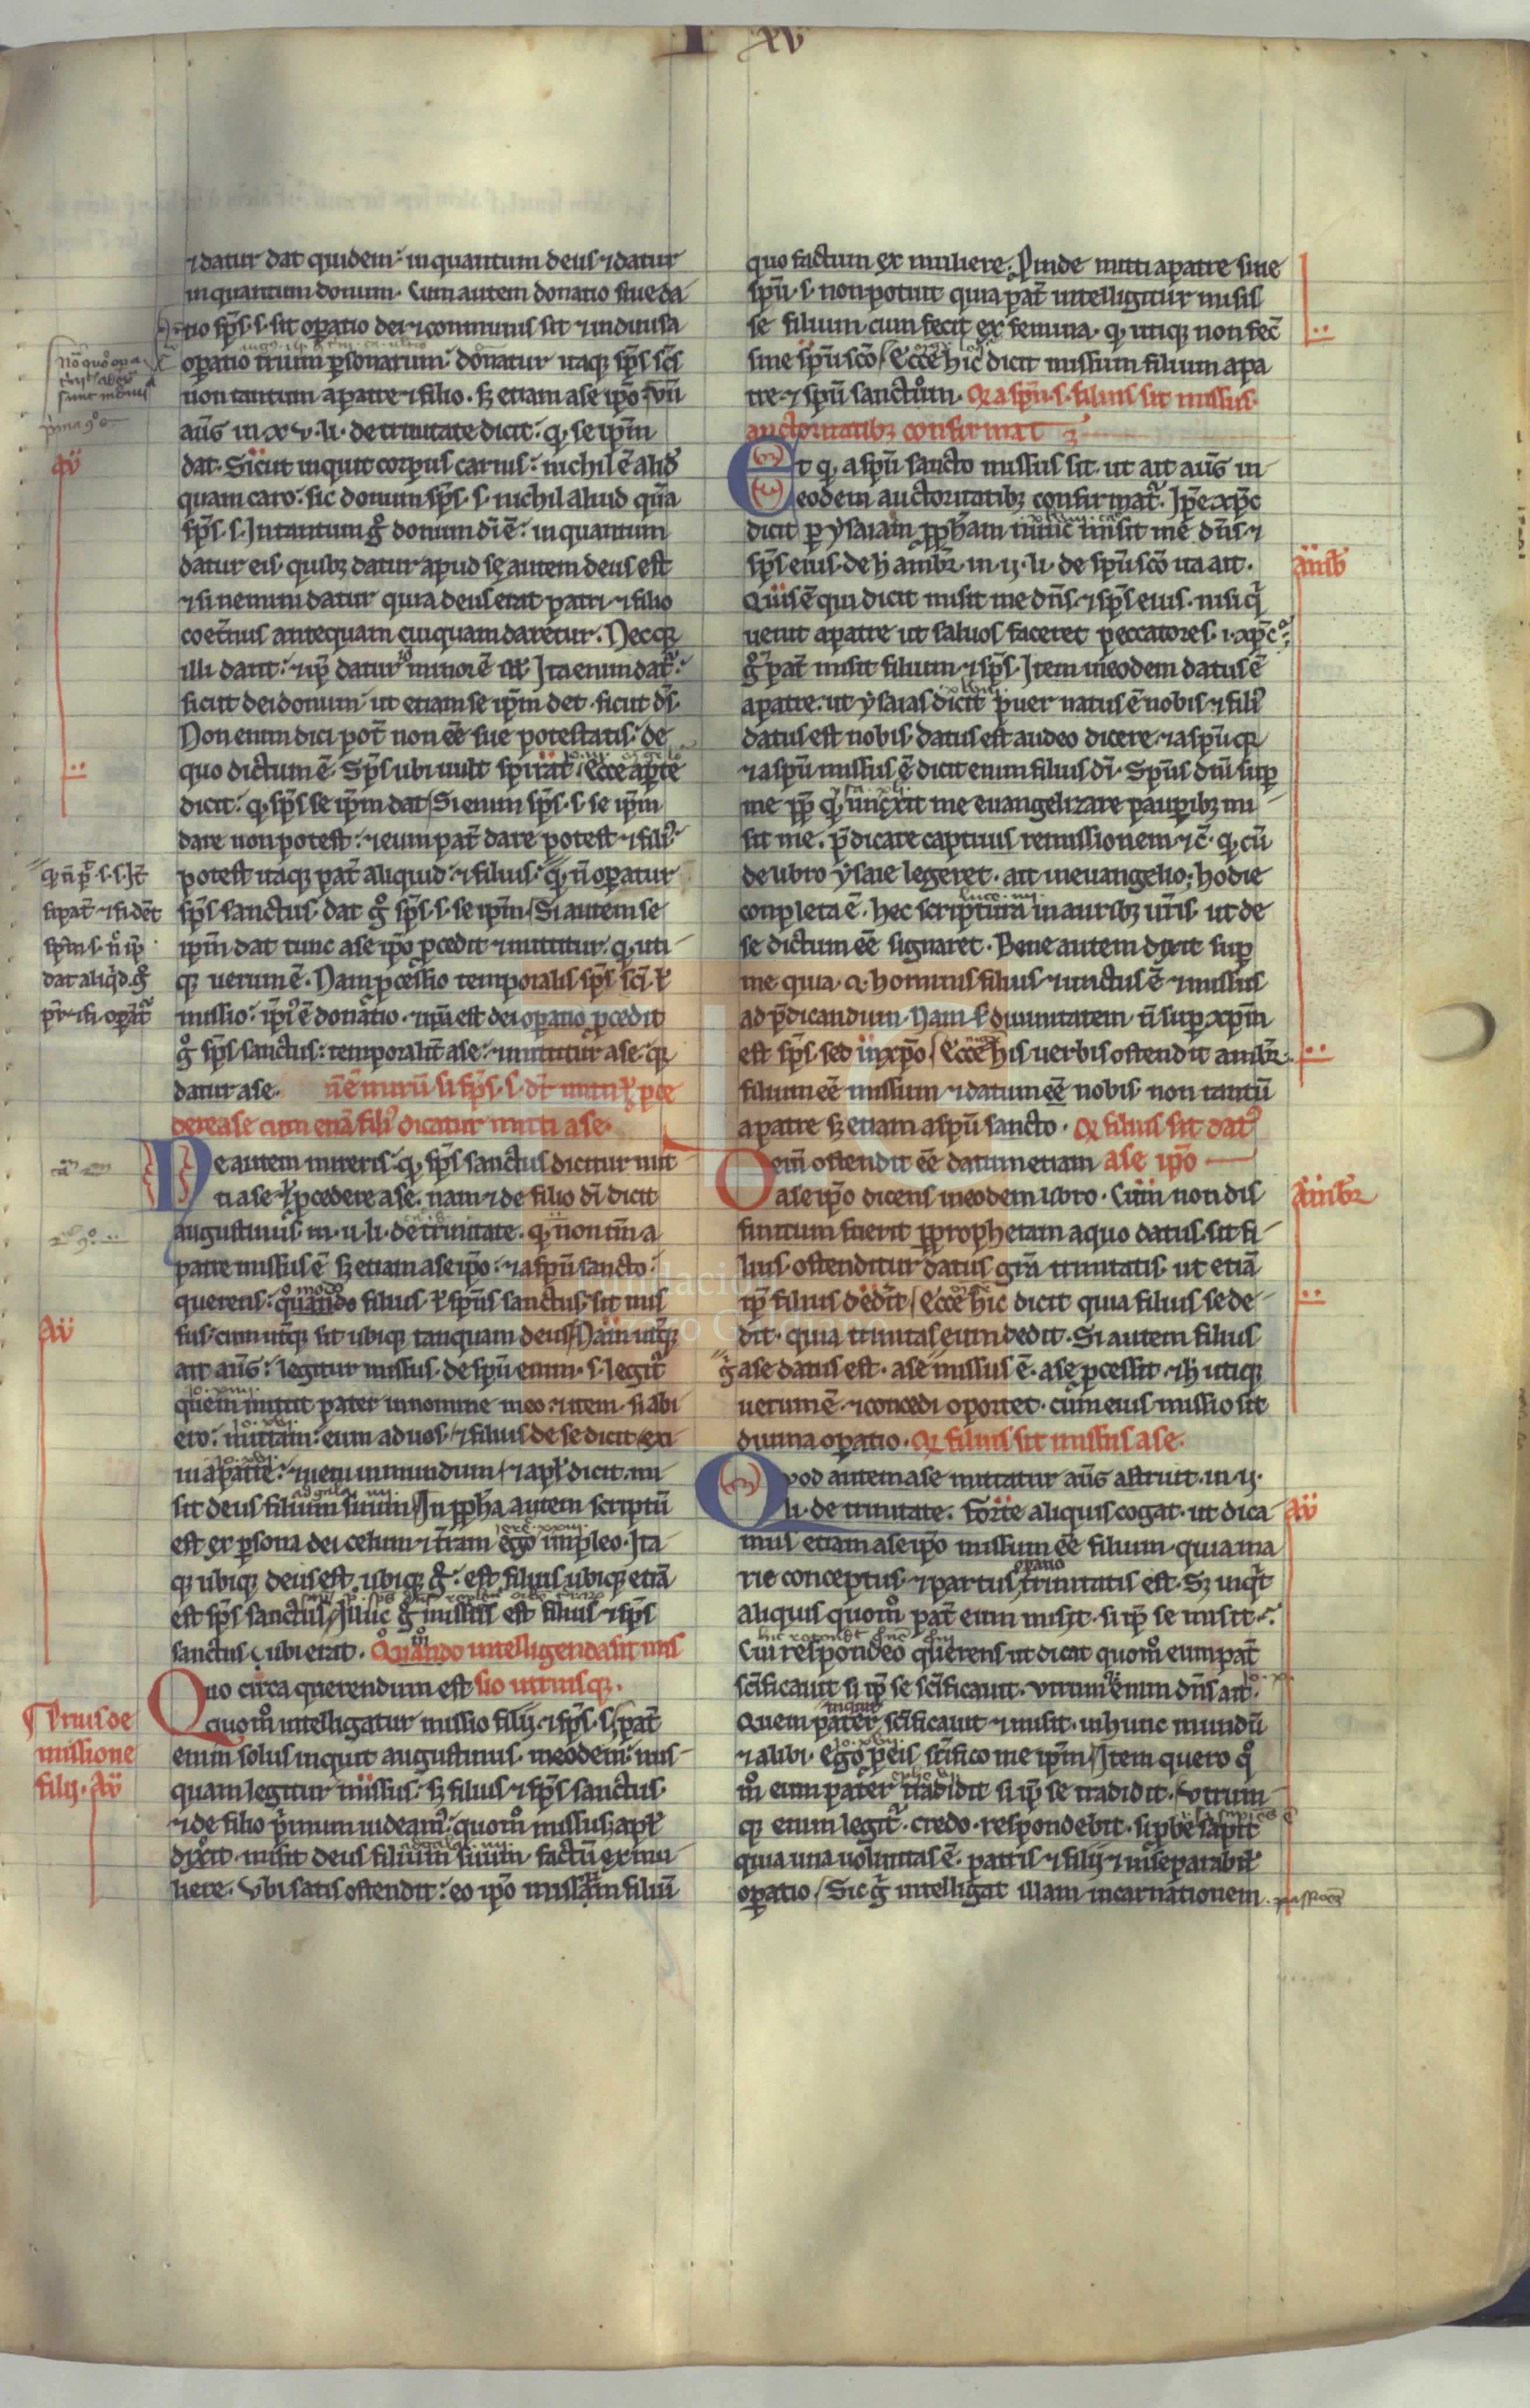 I xv
⁊ datur dat quidem inquantum deus ⁊ datur
inquantum donum. Cum autem donatio siue da
tio sp̄s .s. sit op̄atio dei ⁊ communis sit ⁊ indiuisa
op̄atio trium p̄sonarum. donatur itaq; sp̄s sc̄s
non tantum a patre ⁊ filio. sz etiam a se ip̄o. vn̄
aūg in xv. li. de trinitate dicit. q, se ip̄m
dat. Sicut inquit corpus carnis. nichil ē aliđ
quam caro. sic donum sp̄s .s. nichil aliud q̄m
sp̄s .s. Intantum g° donum dī ē. inquantum
datur eis. quibz datur apud se autem deus est
⁊ si nemini datur quia deus erat patri ⁊ filio
coet̄nus antequam cuiquam daretur. Nec q;
illi dant. ⁊ ip̄e datur io minor ē ill'. Ita enim dat'.
sicut dei donum ut etiam se ip̄m det sicut d's.
Non enim dici pot̄ non eē sue potestatis. de
quo dictum ē. Sp̄s ubi uult spirat. Ecce ap̄te
dicit. q, sp̄s se ip̄m dat Si enim sp̄s .s. se ip̄m
dare non potest. ⁊ eum pat̄ dare potest ⁊ fili'
potest itaq; pat̄ aliquid. ⁊ filius. q, n̄ op̄atur
sp̄s sanctus. dat g° sp̄s .s. se ip̄m Si autem se
ip̄m dat tunc a se ip̄o p̄cedit ⁊ mittitur. q, uti
q; uerum ē. Nam p̄cessio temporalis sp̄s sc̄i. l'
missio. ip̄i' ē donatio. ⁊ ip̄m est dei op̄atio p̄cedit
g° sp̄s sanctus. temporalit̄ a se. ⁊ mittitur a se. q;
datur a se. n̄ ē mirū si sp̄s .s. dr̄ mitti l' p̄ce
dere a se cum etiā fili' dicatur mitti a se.
Ne autem mireris. q, sp̄s sanctus dicitur mit
ti a se l' p̄cedere a se. nam ⁊ de filio dī dicit
augustinus in .ii. li. de trinitate. q, non tm̄ a
patre missus ē sz etiam a se ip̄o. ⁊ a sp̄u sancto.
querens. quomodo filius l' sp̄us sanctus. sit mis
sus. cum ut̄q; sit ubiq; tanquam deus Nam ut̄q;
ait aūg. legitur missus. de sp̄u enim .s. legit'
quem mittit pater in nomine meo. ⁊ item. si abi
ero. mittam. eum ad uos. ⁊ filius de se dicit exi
ui a patre. ⁊ ueni in mundum ⁊ apl' dicit. mi
sit deus filium suum In p̄ph̄a autem scriptū
est ex p̄sona dei celum ⁊ t̄ram ego impleo. Ita
q; ubiq; deus est. ubiq; g° est filius. ubiq; etiā
est sp̄s sanctus. Illuc g° missus est filius ⁊ sp̄s
sanctus. ubi erat. Quomodo intelligenda sit mis
Quo circa querendum est sio utriusq;.
quom° intelligatur missio filij. ⁊ sp̄s .s. pat̄
enim solus inquit augustinus. in eodem. nus
quam legitur missus. sz filius ⁊ sp̄s sanctus.
⁊ de filio p̄mum uideam'. quom° missus apl'
dixit. misit deus filium suum. factū ex mu
liere. Vbi satis ostendit. eo ip̄o missum filiū
quo factum ex muliere. Proinde mitti a patre sine
sp̄u .s. non potuit quia pat̄ intelligitur misis
se filium. cum fecit ex femina. q, utiq; non fec̄
sine sp̄u sc̄o Ecce hic dicit missum filium a pa
tre. ⁊ sp̄u sanctum. Q, a sp̄u .s. filius sit missus.
auctoritatibz confirmat
Et q, a sp̄u sancto missus sit. ut ait aūg in
eodem auctoritatibz confirmat'. Ip̄e xp̄c
dicit p ysaiam pph̄am nunc misit me dn̄s ⁊
sp̄s eius. de h' ambr̄. in .ij. li. de sp̄u sc̄o ita ait.
Quis ē qui dicit misit me dn̄s. ⁊ sp̄s eius. nisi q'
uenit a patre ut saluos faceret peccatores. i. xp̄c.
g° pat̄ misit filium ⁊ sp̄s. Item in eodem datus ē
a patre. ut ysaias dicit puer natus ē nobis ⁊ fili'
datus est nobis. datus est audeo dicere ⁊ a sp̄u q;
⁊ a sp̄u missus ē dicit enim filius dī. Spūs dn̄i sup
me pp̄ q, unxit me euangelizare paupibz mi
sit me. p̄dicare captiuis remissionem ⁊ c̄. q, cū
de libro ysaie legeret. ait in euangelio. hodie
conpleta ē. hec scriptura in auribz ur̄is. ut de
se dictum eē signaret. Bene autem dixit sup
me quia. q, hominis filius ⁊ unctus ē ⁊ missus
ad p̄dicandum. Nam s' diuinitatem n̄ sup xp̄m
est sp̄s. sed in xp̄o Ecce his uerbis ostendit ambr̄.
filium eē missum ⁊ datum eē nobis. non tantū
a patre sz etiam a sp̄u sancto. Q, filius sit dat'
Deīn ostendit eē datum etiam a se ip̄o
a se ip̄o dicens in eodem libro. Cum non dif
finitum fuerit p prophetam a quo datus. sit fi
lius. ostenditur datus gr̄a trinitatis. ut etiā
ip̄e filius dedit Ecce hic dicit quia filius se de
dit. quia trinitas eum dedit. Si autem filius
g° a se datus est. a se missus ē. a se p̄cessit. ⁊ h' utiq;
uerum ē. ⁊ concedi oportet. cum eius missio sit
diuina op̄atio. Q, filius sit missus a se.
Quod autem a se mittatur aūg astruit. in .ij.
li. de trinitate. Forte aliquis cogat. ut dica
mus etiam a se ip̄o missum eē filium. quia ma
rie conceptus. ⁊ partus trinitatis est. Sz inq't
aliquis quom° pat̄ eum misit. si ip̄e se misit.
Cui respondeo querens ut dicat quom° eum pat̄
sc̄ificauit si ip̄e se sc̄ificauit. utrumq; enim dn̄s ait.
Quem pater sc̄ificauit ⁊ misit. in hunc mundū
⁊ alibi. ego p eis sc̄ifico me ip̄m Item quero q°
m° eum pater tradidit si ip̄e se tradidit. utrum
q; enim legit'. credo. respondebit. si p̄be sapit
quia una uoluntas ē. patris ⁊ filij ⁊ inseparabil'
op̄atio Sic g° intelligat illam incarnationem
Aū
sunt in omnibus
q, n̄ p̄ .s. s.
si pat̄ ⁊ fi. dēt
sp̄m .s. n° ip̄e
dat aliq'd. g°
Aū
Prius de
missione
filij. Aū
Amb
Ambr
Aū
passionē